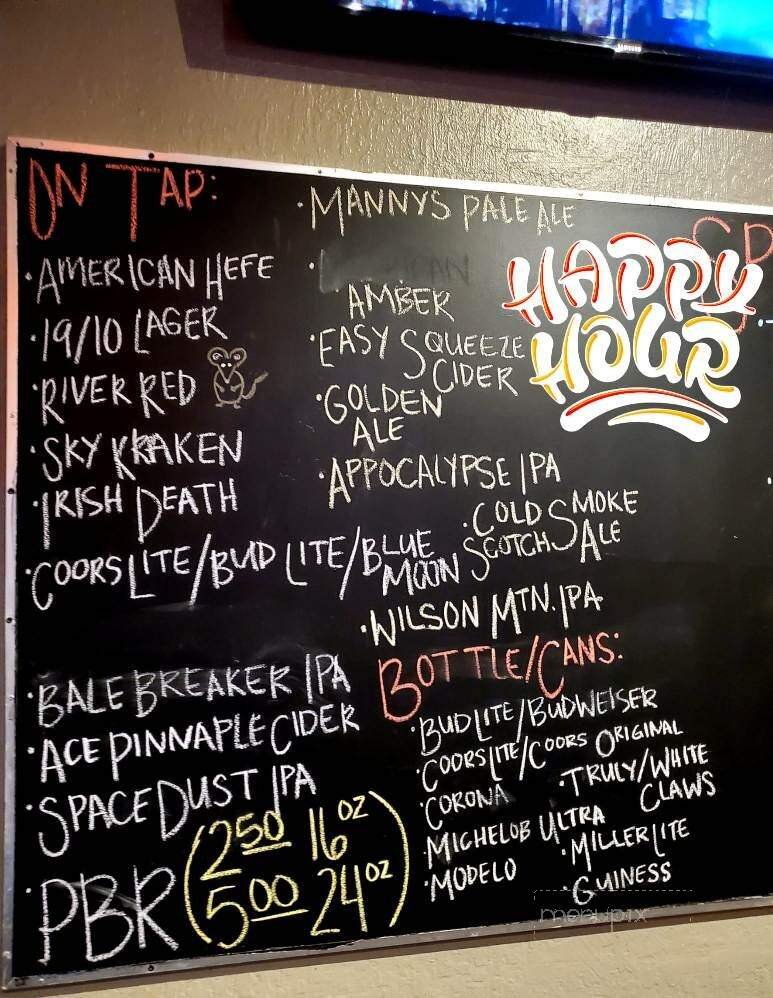 SAMSUNG
ON TAP:
· AMERICAN HEFE
· 19/10 LAGER
· RIVER RED
· SKY KRAKEN
· IRISH DEATH
· COORS LITE/BUD LITE/BLUE
MOON
· BALE BREAKER IPA
· ACE PINNAPLE CIDER
· SPACE DUST IPA
· PBR (2 50 16 OZ
5 00 24 OZ)
· MANNYS PALE ALE
AMBER
· EASY SQUEEZE
CIDER
· GOLDEN
ALE
· APPOCALYPSE IPA
· COLD SMOKE
SCOTCH ALE
· WILSON MTN. IPA
HAPPY
HOUR
BOTTLE/CANS:
· BUD LITE/BUDWEISER
· COORS LITE/COORS ORIGINAL
· CORONA
· TRULY/WHITE
CLAWS
· MICHELOB ULTRA
· MILLER LITE
· MODELO
· GUINESS
menupix